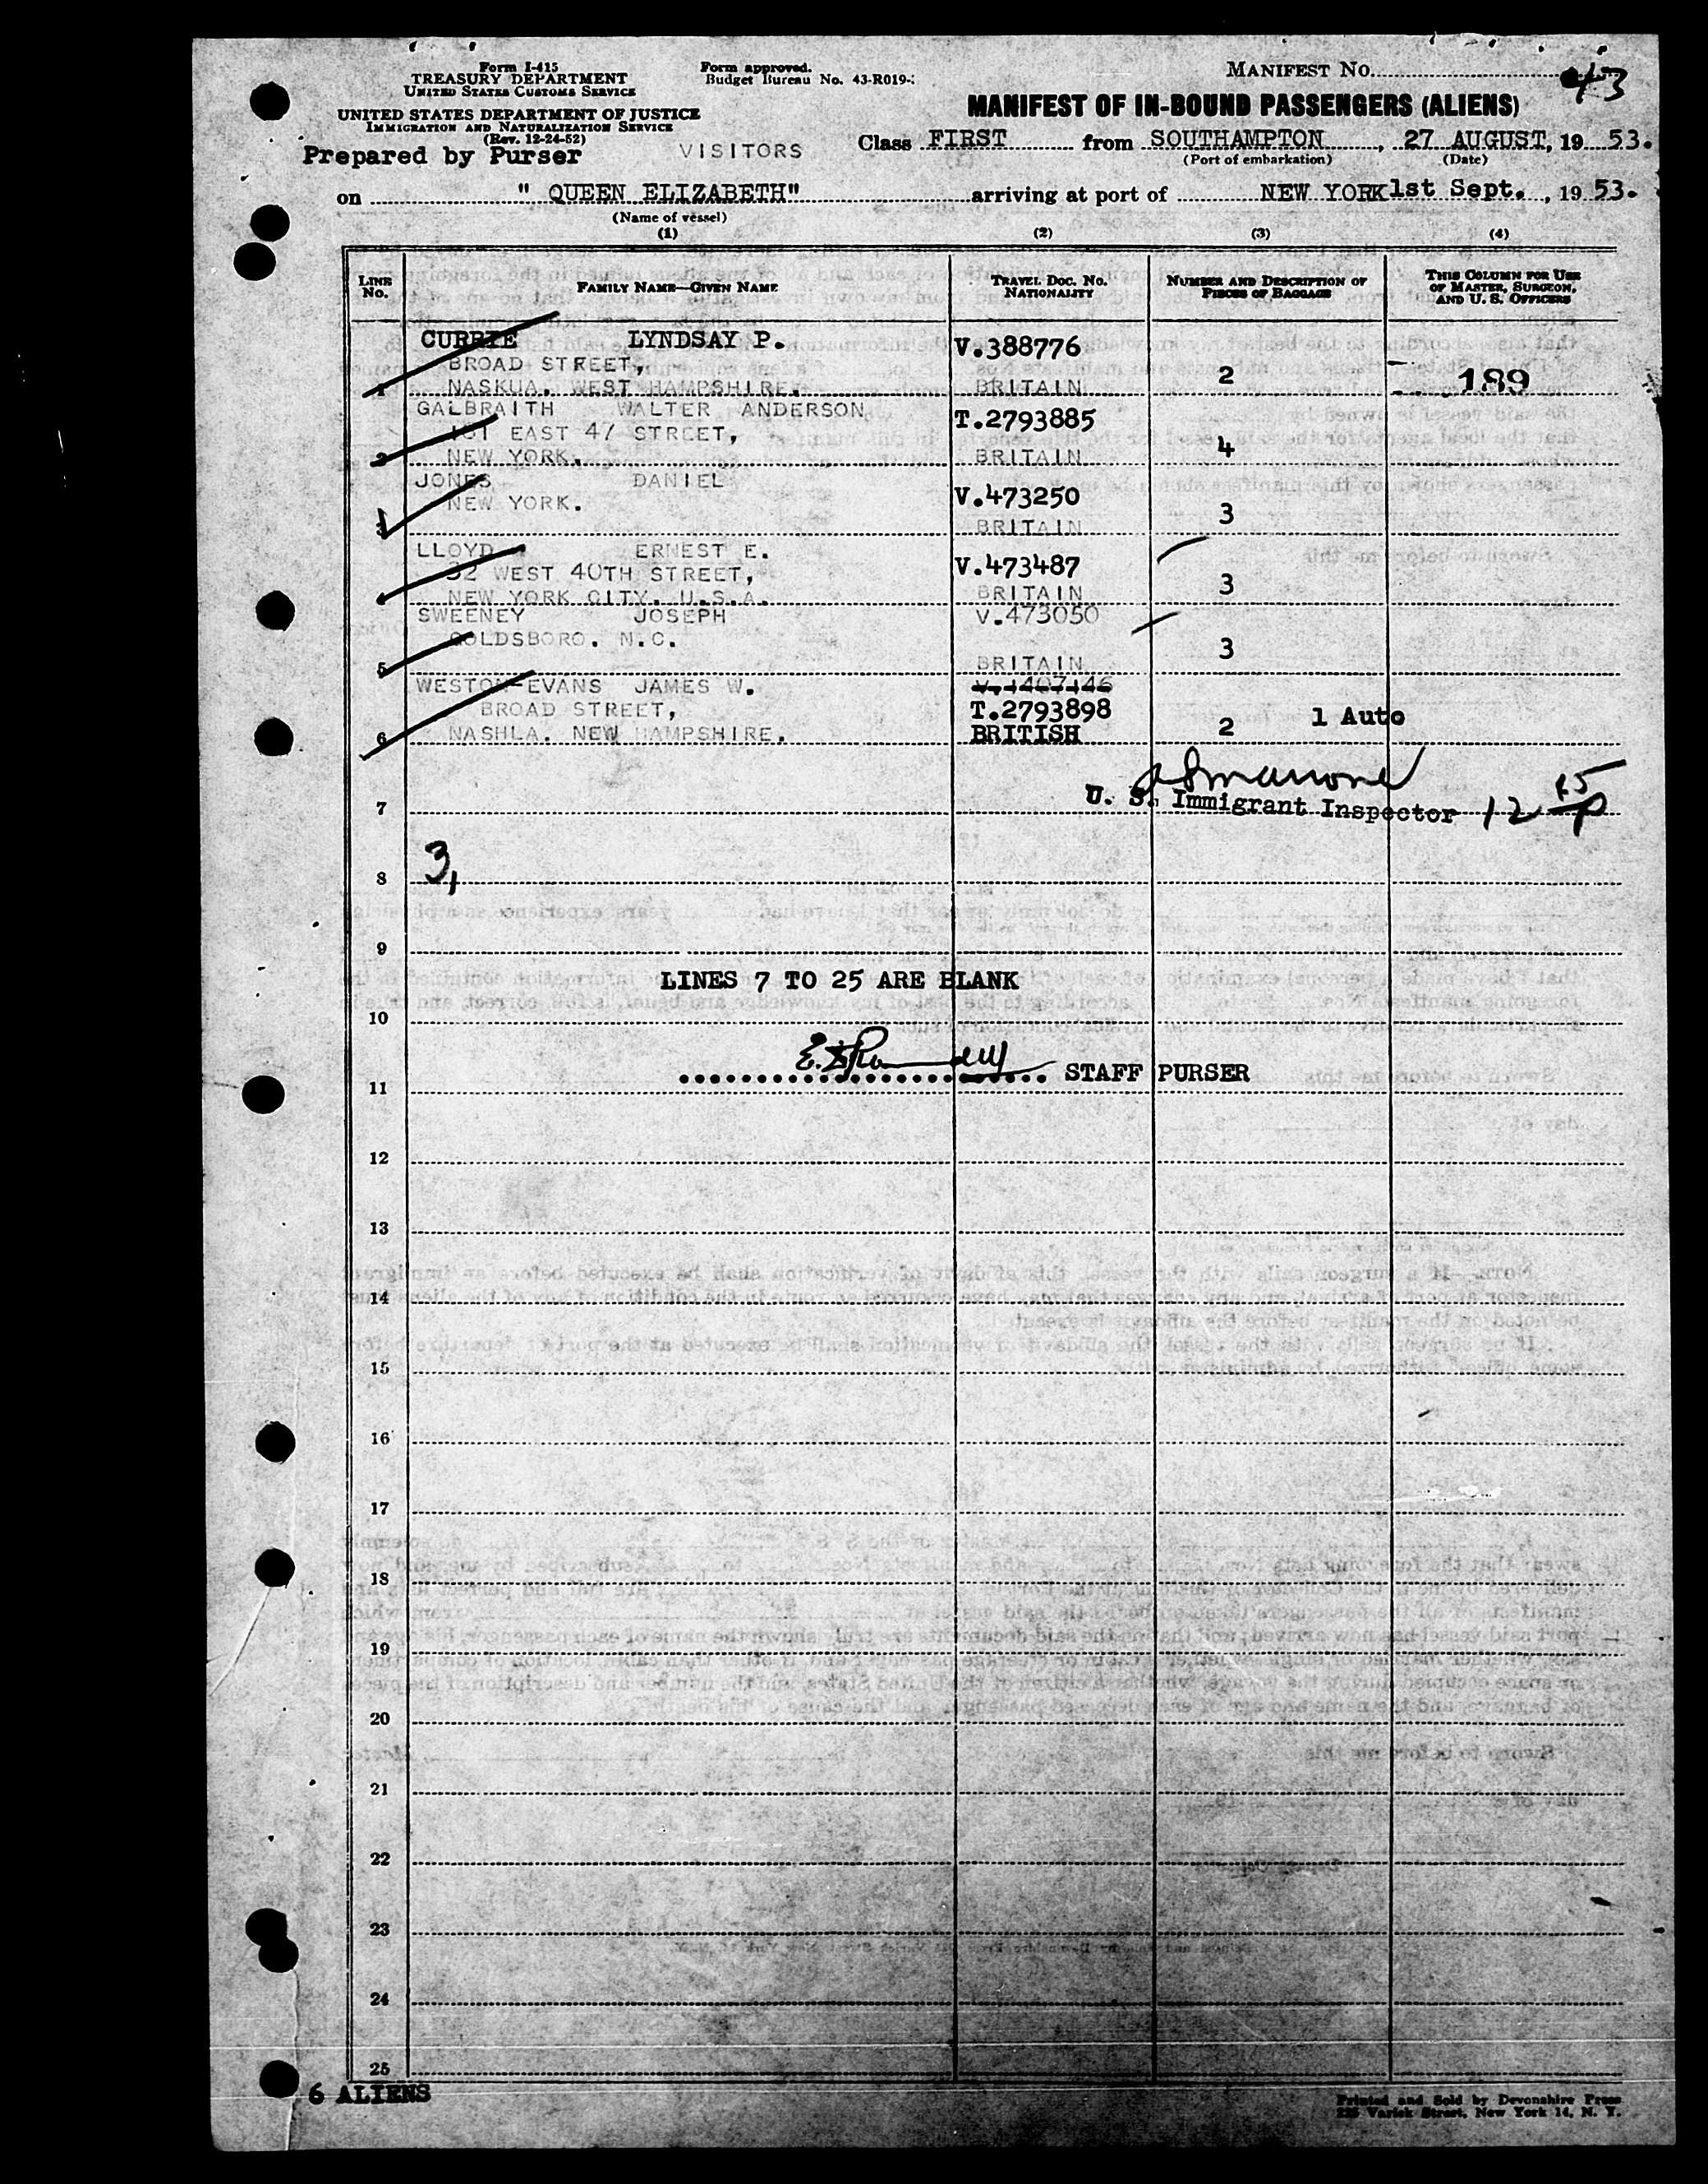 Form I-415
TREASURY DEPARTMENT
UNITED STATES CUSTOMS SERVICE
UNITED STATES DEPARTMENT OF JUSTICE
IMMIGRATION AND NATURALIZATION SERVICE
(Rev. 12-24-52)
Prepared by Purser
VISITORS
Form approved.
Budget Bureau No. 43-R019-
MANIFEST NO. 43
MANIFEST OF IN-BOUND PASSENGERS (ALIENS)
Class FIRST from SOUTHAMPTON, 27 AUGUST, 1953.
(Port of embarkation) (Date)
on " QUEEN ELIZABETH" arriving at port of NEW YORK 1st Sept., 1953.
(Name of vessel)
(1) (2) (3) (4)
LINE No. FAMILY NAME—GIVEN NAME TRAVEL DOC. NO. NATIONALITY NUMBER AND DESCRIPTION OF PIECES OF BAGGAGE THIS COLUMN FOR USE OF MASTER, SURGEON, AND U. S. OFFICERS
CURRIE LYNDSAY P. V.388776
BROAD STREET,
1 NASKUA. WEST HAMPSHIRE. BRITAIN 2 189
GALBRAITH WALTER ANDERSON T.2793885
101 EAST 47 STREET,
2 NEW YORK. BRITAIN 4
JONES DANIEL V.473250
NEW YORK.
3 BRITAIN 3
LLOYD ERNEST E. V.473487
32 WEST 40TH STREET,
4 NEW YORK CITY. U.S.A. BRITAIN 3
SWEENEY JOSEPH V.473050
GOLDSBORO. N.C.
5 BRITAIN 3
WESTON-EVANS JAMES W. V.1407146
BROAD STREET, T.2793898
6 NASHLA. NEW HAMPSHIRE. BRITISH 2 1 Auto
7 U. S. Immigrant Inspector 12
8 3,
9
LINES 7 TO 25 ARE BLANK
10
STAFF PURSER
11
12
13
14
15
16
17
18
19
20
21
22
23
24
25
6 ALIENS
Printed and Sold by Devonshire Press
225 Varick Street, New York 14, N. Y.